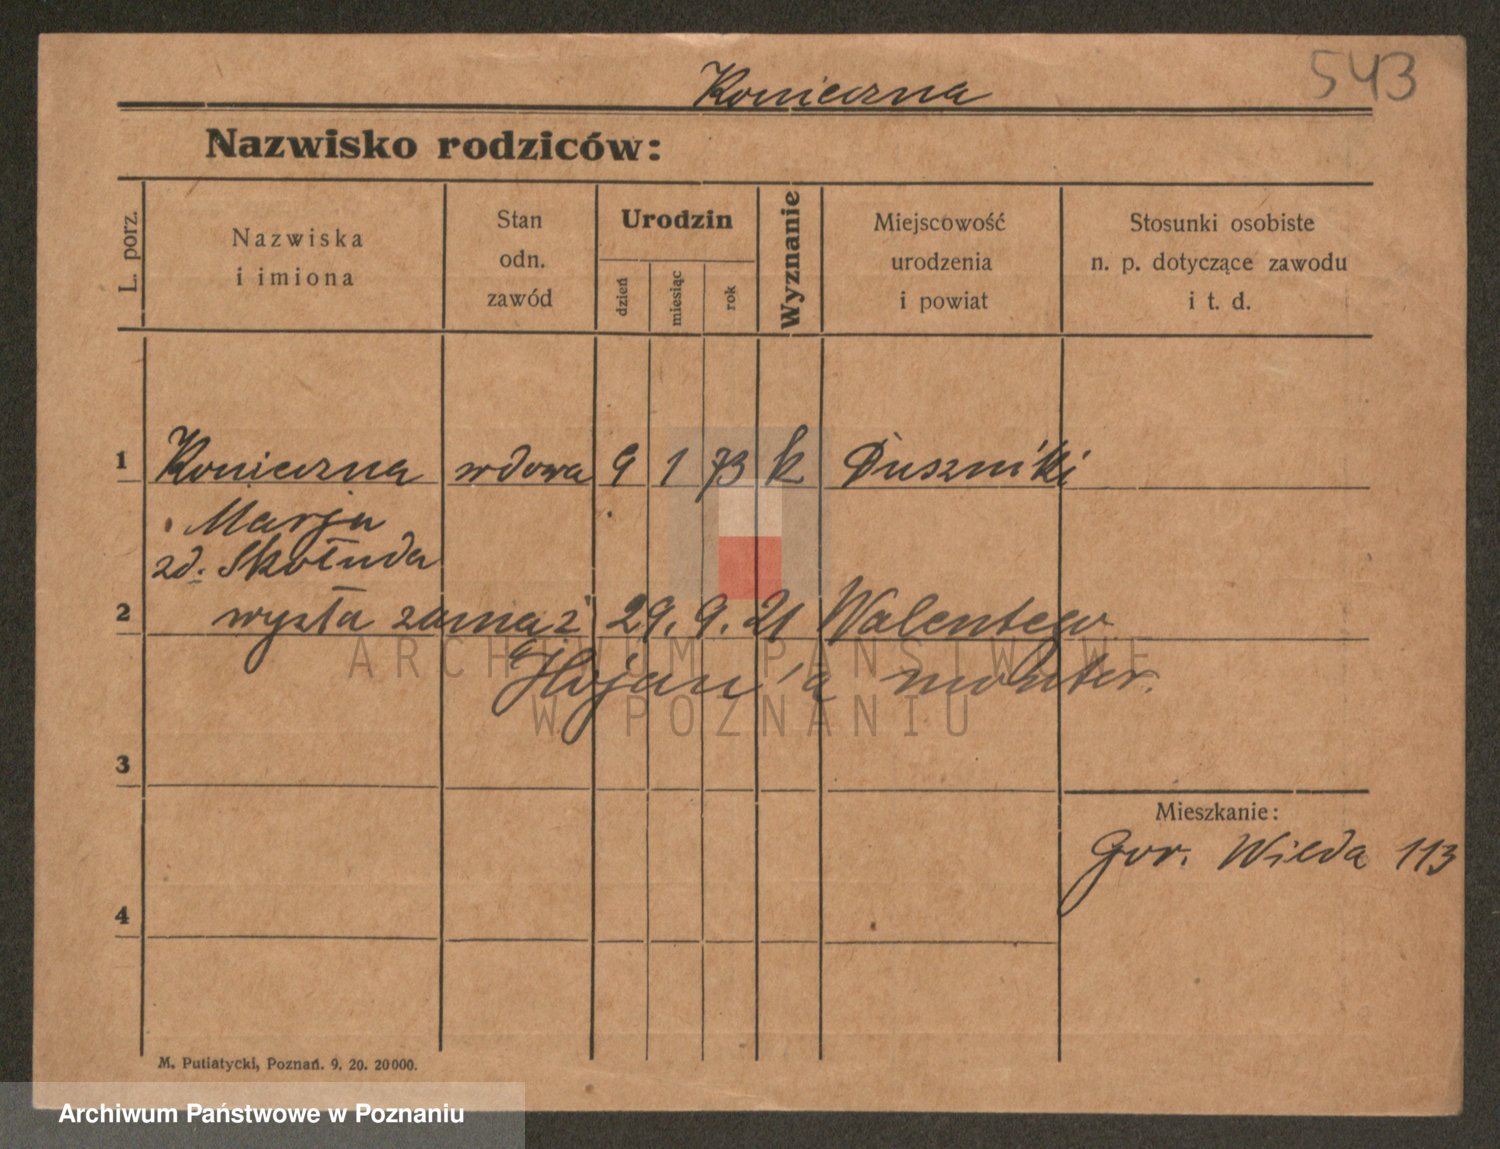 543
Konieczna
Nazwisko rodziców:
L. porz.
Nazwiska
i imiona
Stan
odn.
zawód
Urodzin
dzień
miesiąc
rok
Wyznanie
Miejscowość
urodzenia
i powiat
Stosunki osobiste
n. p. dotyczące zawodu
i t. d.
1 Konieczna wdowa 9 1 73 k Duszniki
Marja
zd. Skołuda
2 wyszła zamąż 29. 9. 21 Walentego
monter.
ARCHIWUM PAŃSTWOWE
W POZNANIU
3
Mieszkanie:
Gór. Wilda 113
4
M. Putiatycki, Poznań. 9. 20. 20000.
Archiwum Państwowe w Poznaniu